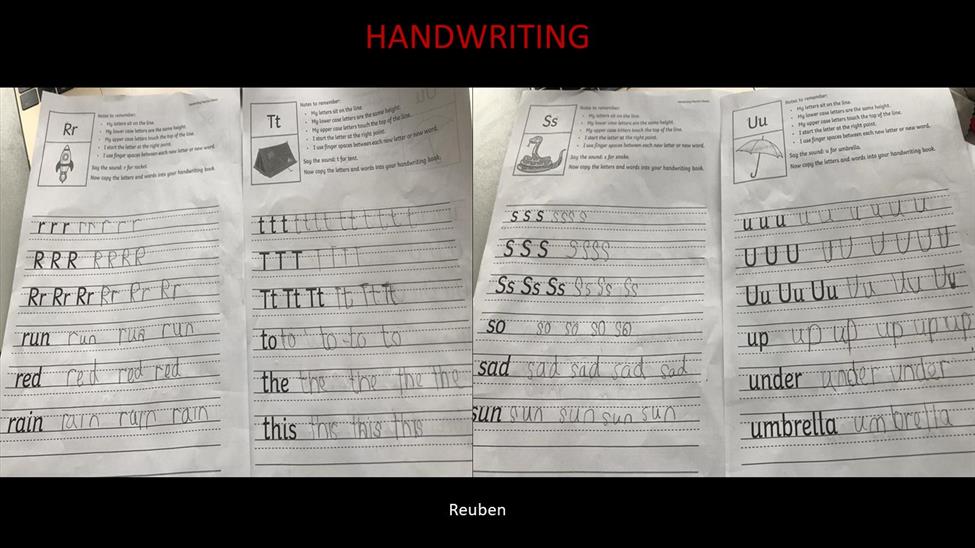 HANDWRITING
Rr
Notes to remember:
• My letters sit on the line.
• My lower case letters are the same height.
• My upper case letters touch the top of the line.
• I start the letter at the right point.
• I use finger spaces between each new letter or new word.
Say the sound: r for rocket.
Now copy the letters and words into your handwriting book.
r r r r r r r r
R R R R R R R
Rr Rr Rr Rr Rr Rr
run run run run
red red red red
rain rain rain rain
Tt
Notes to remember:
• My letters sit on the line.
• My lower case letters are the same height.
• My upper case letters touch the top of the line.
• I start the letter at the right point.
• I use finger spaces between each new letter or new word.
Say the sound: t for tent.
Now copy the letters and words into your handwriting book.
t t t t t t t t t t t t t
T T T T T T T
Tt Tt Tt Tt Tt Tt
to to to to to
the the the the the
this this this this
Ss
Notes to remember:
• My letters sit on the line.
• My lower case letters are the same height.
• My upper case letters touch the top of the line.
• I start the letter at the right point.
• I use finger spaces between each new letter or new word.
Say the sound: s for snake.
Now copy the letters and words into your handwriting book.
s s s s s s s
S S S S S S S
Ss Ss Ss Ss Ss Ss
so so so so so
sad sad sad sad sad
sun sun sun sun sun
Uu
Notes to remember:
• My letters sit on the line.
• My lower case letters are the same height.
• My upper case letters touch the top of the line.
• I start the letter at the right point.
• I use finger spaces between each new letter or new word.
Say the sound: u for umbrella.
Now copy the letters and words into your handwriting book.
u u u u u u u u u
U U U U U U U U
Uu Uu Uu Uu Uu Uu
up up up up up up
under under under
umbrella umbrella
Reuben